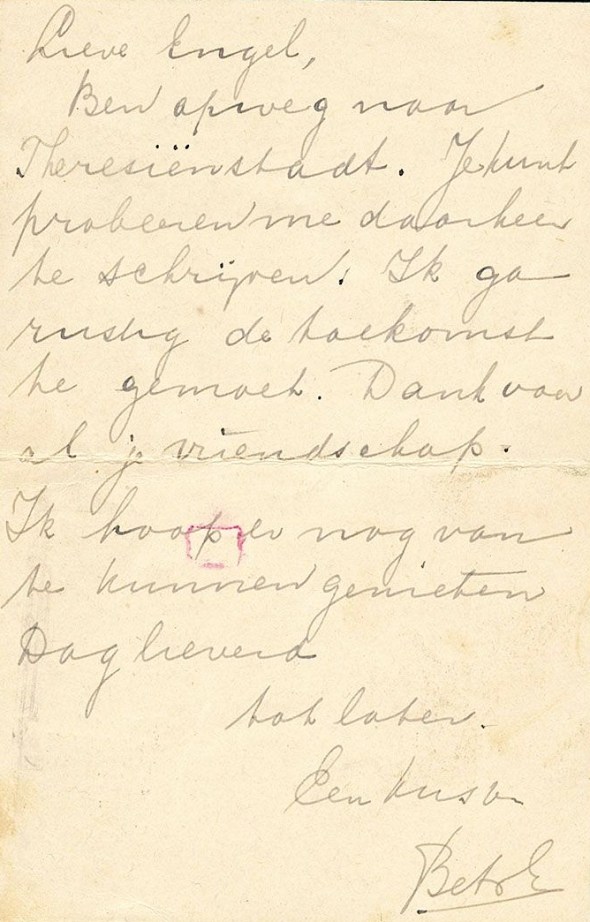 Lieve Engel,
Ben op weg naar
Theresiënstadt. Je kunt
probeeren me daarheen
te schrijven. Ik ga
rustig de toekomst
te gemoet. Dank voor
al je vriendschap.
Ik hoop er nog van
te kunnen genieten
Dag lieverd
tot later.
Een kus v